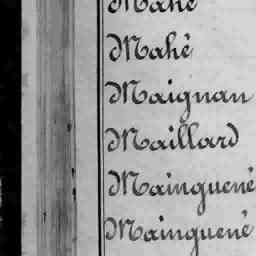 Mahé
Mahé
Maignan
Maillard
Mainguené
Mainguené